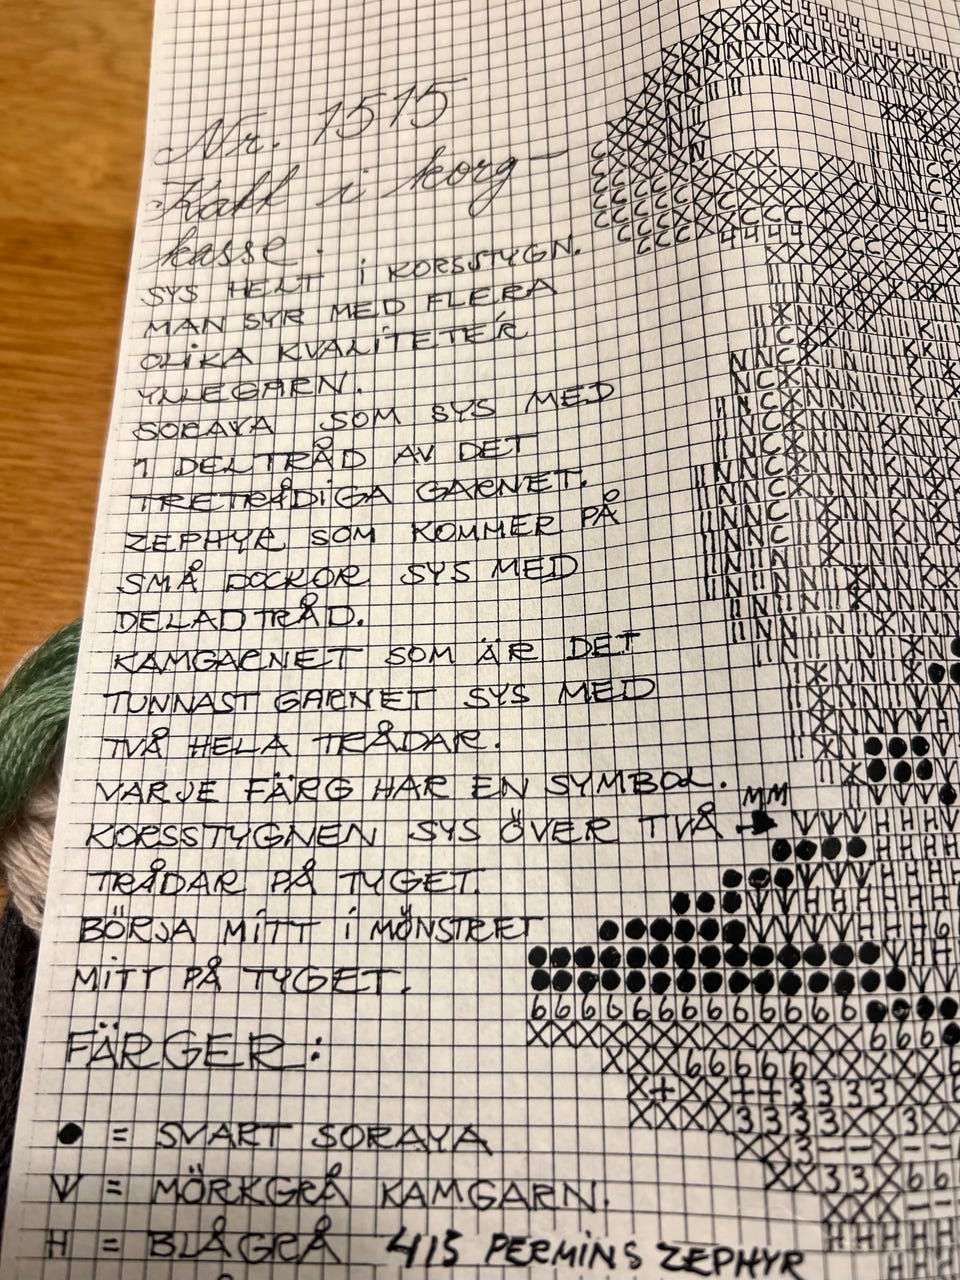 Nr. 1515
Katt i korg-
kasse.
SYS HELT I KORSSTYGN.
MAN SYR MED FLERA
OLIKA KVALITETÉR
YLLEGARN.
SORAYA SOM SYS MED
1 DELTRÅD AV DET
TRETRÅDIGA GARNET.
ZEPHYR SOM KOMMER PÅ
SMÅ DOCKOR SYS MED
DELAD TRÅD.
KAMGARNET SOM ÄR DET
TUNNAST GARNET SYS MED
TVÅ HELA TRÅDAR.
VARJE FÄRG HAR EN SYMBOL.
MM
KORSSTYGNEN SYS ÖVER TVÅ
TRÅDAR PÅ TYGET.
BÖRJA MITT I MÖNSTRET
MITT PÅ TYGET.
FÄRGER:
● = SVART SORAYA
V = MÖRKGRÅ KAMGARN.
H = BLÅGRÅ 415 PERMINS ZEPHYR